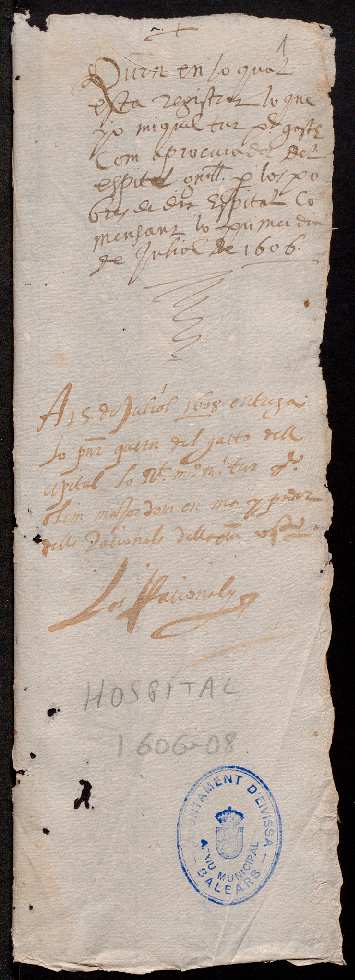 1
Quern en lo qual
esta registrat lo que
yo miquel tur
com a procurador del
espital per los po
bres de dit espital co
mensant lo primer dia
de Juliol de 1606
A 15 de Juliol 1608 entrega
lo pnt quern del gasto dell
espital lo tur
olim mostodon en ma y poder
dells Rationals
Los Rationals
HOSPITAL
1606-08
AJUNTAMENT D'EIVISSA
ARXIU MUNICIPAL
BALEARS